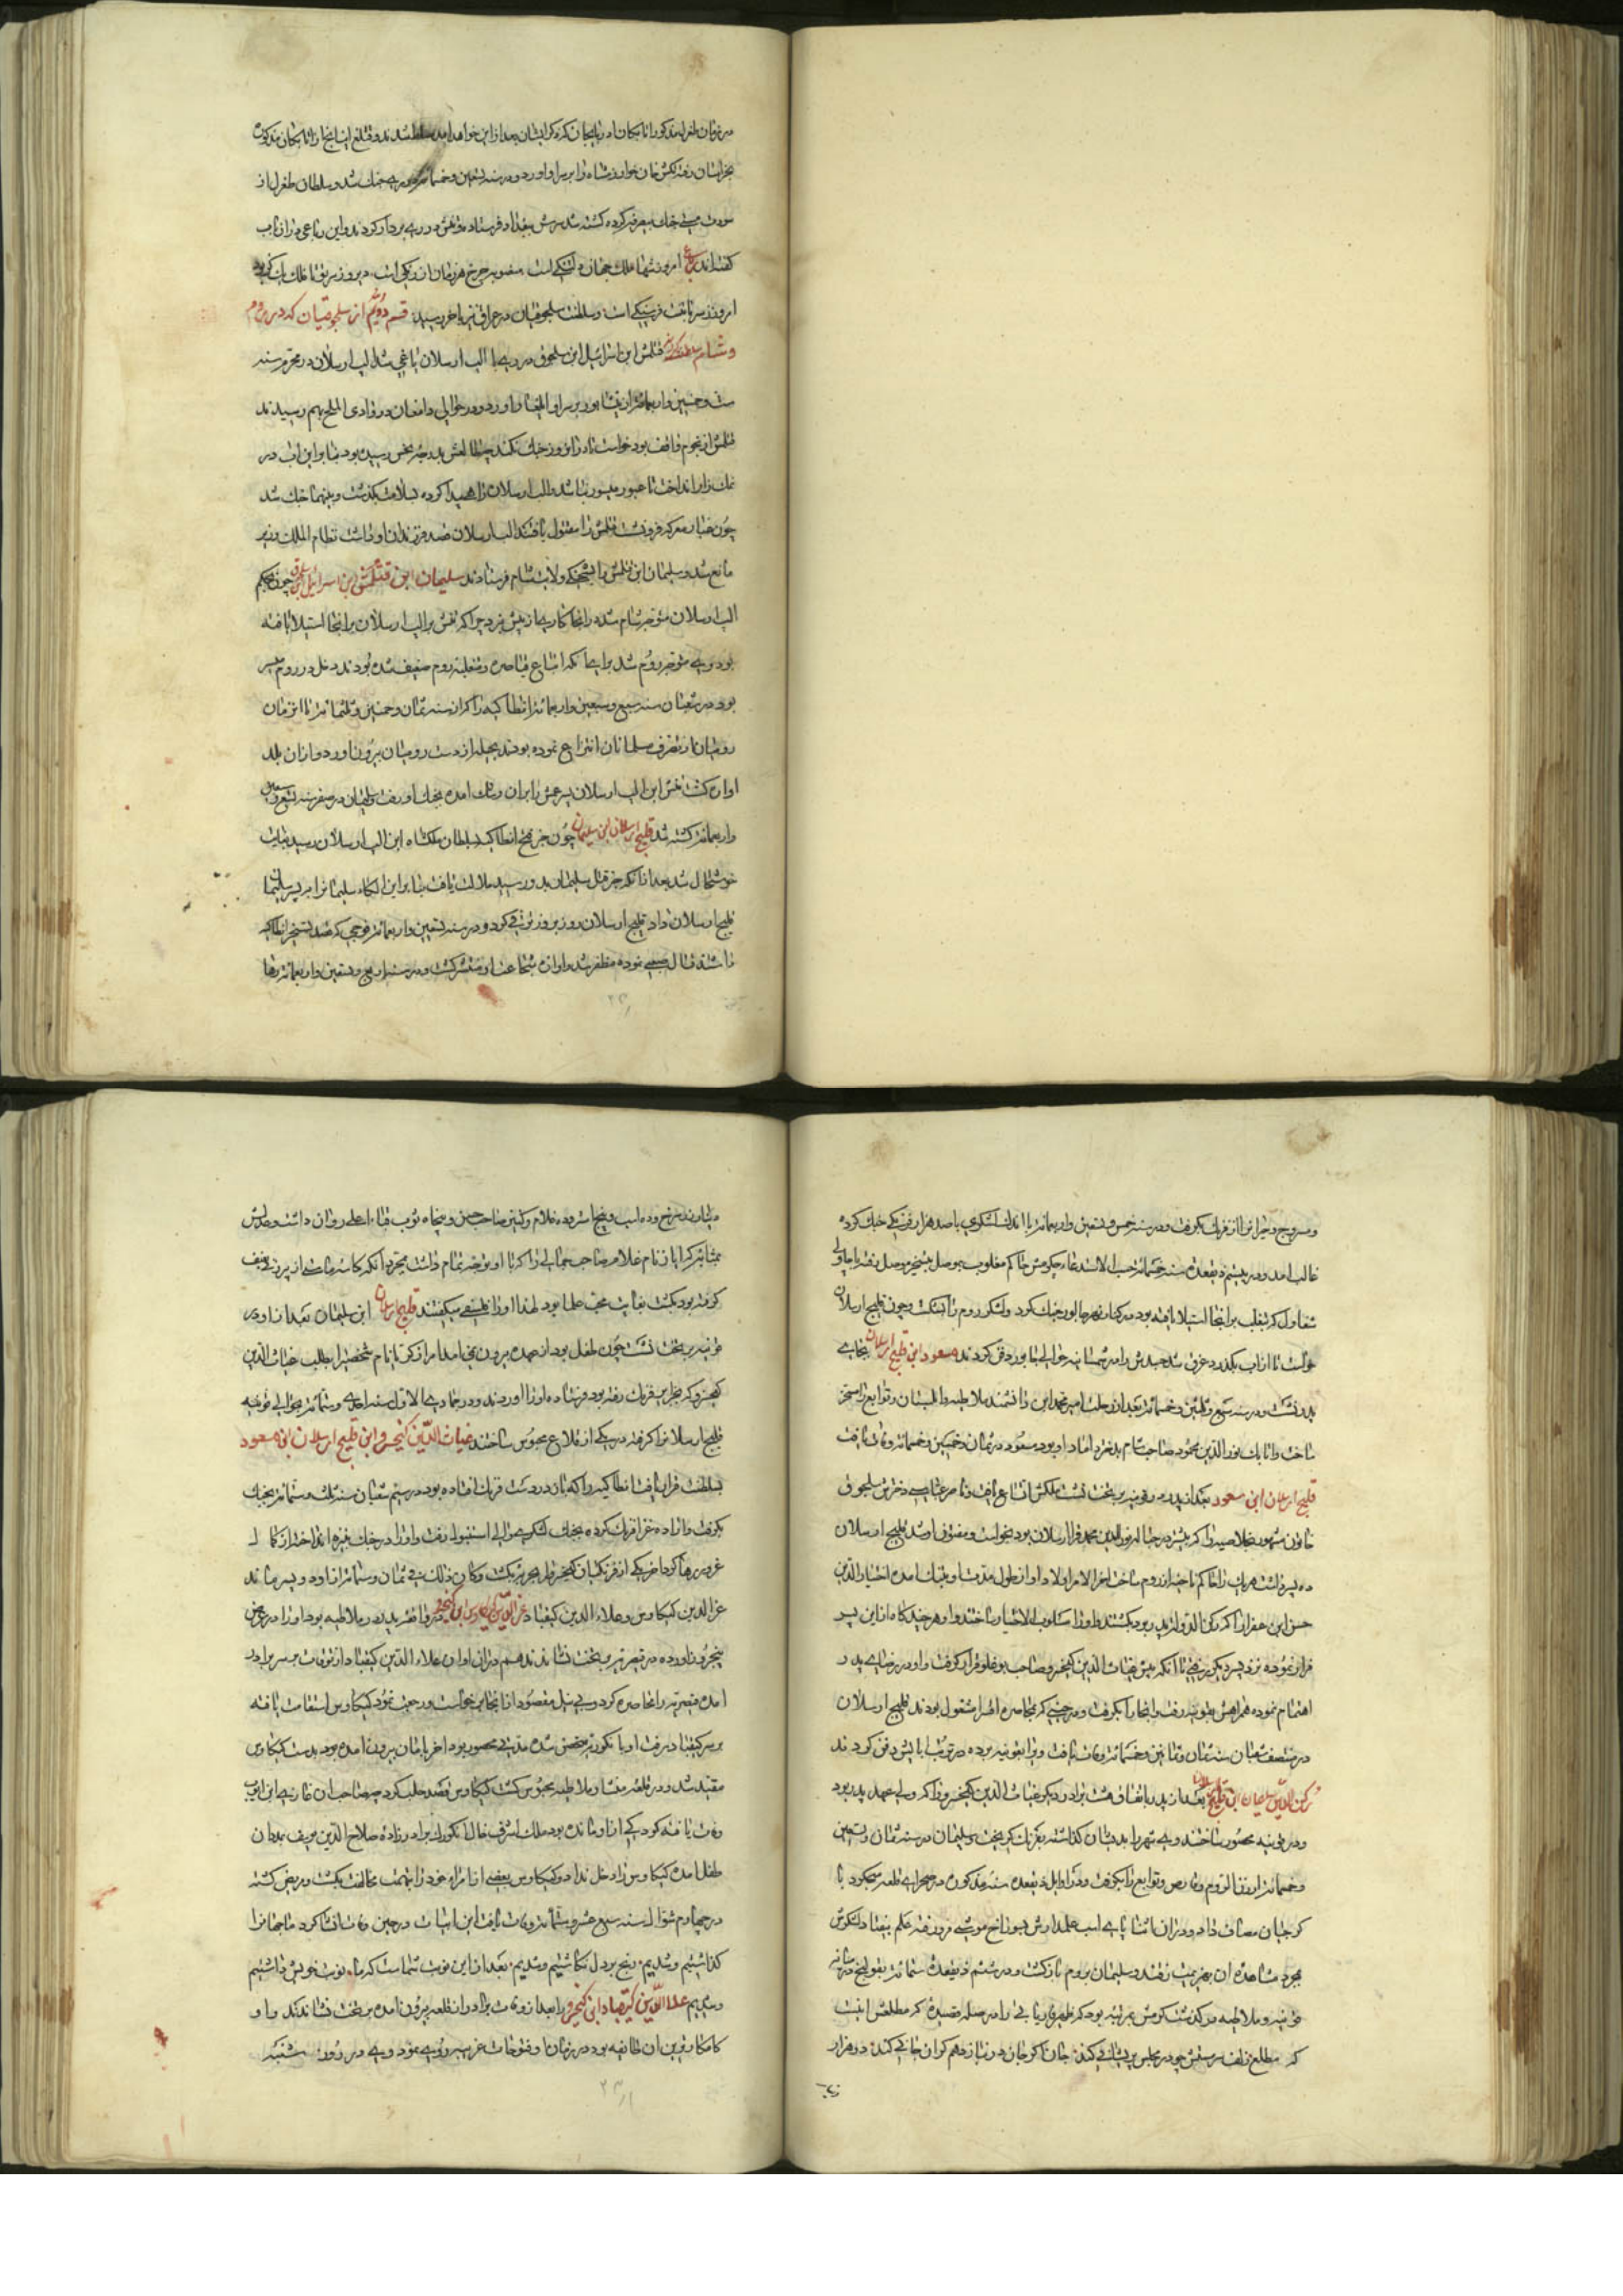 در زمان طغرل مذکور اتابکان اذربایجان که ذکر ایشان بعد ازین خواهد امد مسلط شدند و قتلغ اینانج از اتابکان مذکوره
بخراسان رفته تکش خان خوارزمشاه را بر سر او اورد و در سنه تسعین و خمسمائه در ری جنک شد و سلطان طغرل از
مستی جنک کرده کشته شد سرش ببغداد فرستاده و تنش در ری بردار کردند و این رباعی در ان باب
کفته‌اند رباعی امروز شها ملک جهان دلتنکی است فیروزه چرخ هر زمان از رنکی است دیروز ز سر تو تا فلک یک کز بود
امروز ز سر تا بتنت فرسنکی است و سلطنت سلجوقیان در عراق نیز باخر رسید قسم دوم از سلجوقیان که در روم
و شام سلطنت کردند قتلمش ابن اسرائیل ابن سلجوق در ری با الب ارسلان یاغی شد الب ارسلان در محرم سنه
ست و خمسین و اربعمائه از نیشابور بر سر او ایلغار اورد و در حوالی دامغان در وادی الملح بهم رسیدند
قتلمش از نجوم واقف بود خواست تا در ان روز جنک نکند چه طالعش بدرجه نحس رسیده بود بنابراین اب در
نمک‌زار انداخت تا عبور میسور نباشد والب ارسلان راهی پیدا کرده بسلامت بکذشت و بینهما جنک شد
چون غبار معرکه فرو نشست قتلمش را مقتول یافتند الب ارسلان قصد فرزندان او داشت نظام الملک وزیر
مانع شد و سلیمان ابن قتلمش را بشحنکی ولایت شام فرستادند سلیمان ابن قتلمش ابن اسرائیل ابن سلجوق چون بحکم
الب ارسلان متوجه شام شده در انجا کاری از پیش نبرد چرا که تتش بن الب ارسلان بر انجا استیلا یافته
بود وی متوجه روم شد برای انکه اتباع قیاصره و متغلبه روم ضعیف شده بودند دخل در روم میسر
بود در شعبان سنه سبع و سبعین و اربعمائه انطاکیه را که از سنه ثمان و خمسین و ثلثمائه تا ان زمان
رومیان از تصرف مسلمانان انتزاع نموده بودند بحیله از دست رومیان بیرون اورد و از ان بلد
اواره کشت تتش ابن الب ارسلان بر این و ان امده بجنک او رفت و سلیمان در صفر سنه تسع و سبعین
و اربعمائه کشته شد قلیج ارسلان ابن سلیمان چون خبر فتح انطاکیه بسلطان ملکشاه ابن الب ارسلان رسید بغایت
خوشحال شد بعد از انکه خبر قتل سلیمان بدو رسید ملالت یافت بنابراین الکاء سلیمان را بر پسر سلیمان
قلیج ارسلان داد قلیج ارسلان روز بروز ترقی کرد و در سنه تسعین و اربعمائه با فوجی که قصد تسخیر انطاکیه
داشتند قتال صعبی نموده مظفر شد و اوازه شجاعت او منتشر کشت و در سنه اربع و تسعین و اربعمائه رها
و سروج و حران را از فرنک بکرفت و در سنه خمس و تسعین و اربعمائه با اندک لشکری با صد هزار فرنکی جنک کرده
غالب امد و در بیستم ذیقعده سنه خمسمائه حسب الاستدعاء چکرمش حاکم مغلوب موصل بتسخیر موصل رفته با جاولی
سقاول که بتغلب بر انجا استیلا یافته بود در کنار نهر خابور جنک کرد و لشکر روم را شکست و چون قلیج ارسلان
خواست تا از اب بکذرد غرق شد جسدش را در شمسانیه حوالی خابور دفن کردند مسعود ابن قلیج ارسلان بجای
پدر نشست و در سنه سبع و ثلثین و خمسمائه بعد از رحلت امیر محمد ابن دانشمند ملاطیه و البستان و توابع را مسخر
ساخت و اتابک نورالدین محمود صاحب شام بدختر داماد او بود مسعود در ثمان و خمسین و خمسمائه وفات یافت
قلیج ارسلان ابن مسعود بعد از پدر در قونیه بر تخت نشست ملکش اتساع یافت
خاتون مشهور بخلاصیه را که پیشتر در حباله نورالدین محمد قرا ارسلان بود بخواست و مفتون او شد قلیج ارسلان
ده پسر داشت هر یک را حاکم ناحیه از روم ساخت اخر الامر اولاد او از طول مدت او بتنک امده اختیارالدین
حسن ابن غفراس را که رکن الدوله او بود بکشتند و او را مسلوب الاختیار ساختند و او هر چند کاه از این پسر
فرار نموده نزد پسر دیکر رفتی تا انکه پیش غیاث الدین کیخسرو صاحب برغلو قرار کرفت و او در رضای پدر
اهتمام نموده همراهش بقونیه رفت و انجا را بکرفت و در حینی که بمحاصره اقسرا مشغول بودند قلیج ارسلان
در منتصف شعبان سنه ثمان و ثمانین و خمسمائه وفات یافت و او را بقونیه برده در تربت ابایش دفن کردند
رکن الدین سلیمان ابن قلیج ارسلان بعد از پدر باتفاق هشت برادر دیکر غیاث الدین کیخسرو را که ولی عهد پدر بود
و در قونیه محصور ساختند وی شهر را بدیشان کذاشته بفرنک کریخت و سلیمان در سنه ثمان و تسعین
و خمسمائه ارزن الروم و قارص و توابع را بکرفت و در اوایل ذیقعده سنه مذکوره در صحرای قلعه میجکرد با
کرجیان مصاف داد و در ان اثنا پای اسب علمدارش بسوراخ موشی فرو رفته علم بیفتاد لشکرش
بمجرد مشاهده ان بهزیمت رفتند و سلیمان بروم بازکشت و در ششم ذیقعده ستمائه بقولنج در میانه
قونیه و ملاطیه درکذشت کرمش بمرتبه بود که ظهیر فاریابی را در صله قصیده که مطلعش اینست
که مطلع زلف سرمستش چو در مجلس پریشانی کند جان اکر جان در نیازد هم کران جانی کند دو هزار
دینار و ده اسب و پنج استر و ده غلام و کنیز صاحب حسن و پنجاه ثوب قباء اعلی روان داشت و عدلش
بمثابه که ایاز نام غلام صاحب جمالی را که با او توجه تمام داشت بمجرد انکه کاسه ماستی از پیرزنی بعنف
کرفته بود بکشت بغایت محب حکما بود لهذا او را فلسفی میکفتند قلیج ارسلان ابن سلیمان بعد از او در
قونیه بر تخت نشست چون طفل بود از عهده بیرون نمی‌امد امرا زکریا نام شخصی را بطلب غیاث الدین
کیخسرو که بجزایر فرنک رفته بود فرستاده او را اوردند و در جمادی الاول سنه احدی و ستمائه بحوالی قونیه
قلیج ارسلان را کرفته در یکی از قلاع محبوس ساختند غیاث الدین کیخسرو ابن قلیج ارسلان ابن مسعود
بسلطنت قرار یافت انطاکیه را که باز در دست فرنک افتاده بود در سیم شعبان سنه ثلث و ستمائه بجنک
بکرفت و اراده غزا فرنک کرده بجنک لشکری حوالی استنبول رفت و او را در جنک نیزه انداخته از کمال
غرور رها کرد اخر یکی از فرنکیان کیخسرو را بضرب تیر بکشت و کان ذلک فی ثمان و ستمائه از او دو پسر ماند
عزالدین کیکاوس و علاء الدین کیقباد عزالدین کیکاوس ابن کیخسرو در واقعه پدر در ملاطیه بود او را در عرض
پنج روز اورده در قیصریه بر تخت نشاندند هم در ان اوان علاء الدین کیقباد از توقات بر سر برادر
امده قیصریه را محاصره کرد و بی نیل مقصود از انجا برخواست و رجعت نمود کیکاوس استقامت یافته
بر سر کیقباد رفت او بانکوریه متحصن شده مدتی محصور بود اخر بامان بیرون امده بود بدست کیکاوس
مقید شد و در قلعه منشار ملاطیه محبوس کشت کیکاوس قصد حلب کرد چه صاحب ان غازی ابن ایوب
وفات یافته کودکی از او مانده بود ملک اشرف خال ان کودک برادرزاده صلاح الدین یوسف بمدد ان
طفل امده کیکاوس را دخل نداد و کیکاوس بعضی از امراء خود را بتهمت مخالفت بکشت و مریض کشته
در چهارم شوال سنه سبع عشر و ستمائه وفات یافت این ابیات در حین وفات انشا کرد ما جهانرا
کذاشتیم و شدیم رنج بر دل نکاشتیم و شدیم بعد از این نوبت شماست که ما نوبت خویش داشتیم
و شدیم علاءالدین کیقباد ابن کیخسرو را بعد از وفات برادر از قلعه بیرون امده بر تخت نشاندند و او
کامکارترین ان طایفه بود در زمان او فتوحات غریبه روی نمود وی در روز شنبه